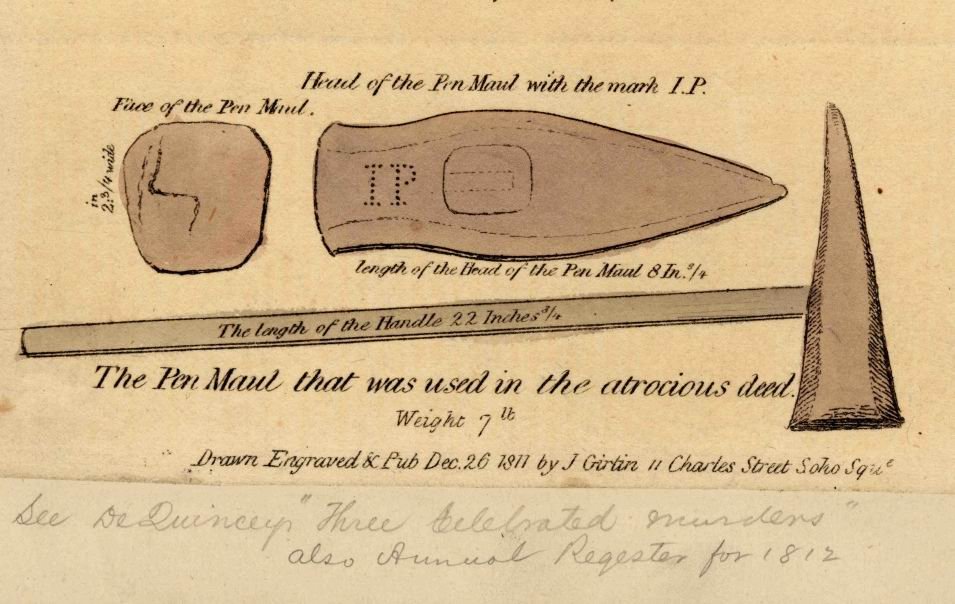 Head of the Pen Maul with the mark I.P.
Face of the Pen Maul.
in
2.3/4 wide
IP
length of the Head of the Pen Maul 8 In.s/4
The length of the Handle 22 Inches 3/4
The Pen Maul that was used in the atrocious deed.
Weight 7 lt
Drawn Engraved & Pub Dec. 26 1811 by J Girtin 11 Charles Street Soho Sque
See De Quinceys "Three Celebrated murders"
also Annual Regester for 1812